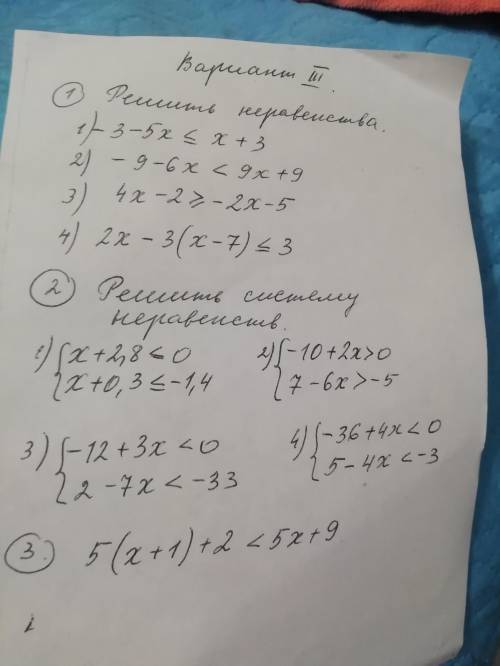 Вариант III.
① Решить неравенства.
1) -3-5x ≤ x+3
2) -9-6x < 9x+9
3) 4x-2 ≥ -2x-5
4) 2x-3(x-7) ≤ 3
② Решить систему
неравенств.
1) { x+2,8 ≤ 0 2) { -10+2x>0
x+0,3 ≤ -1,4 7-6x > -5
3) { -12+3x < 0 4) { -36+4x < 0
2-7x < -33 5-4x < -3
③ 5(x+1)+2 < 5x+9